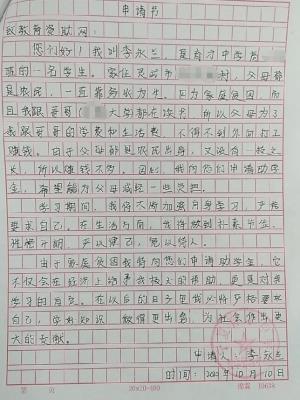 申请书
致教育资助网：
您们好！我叫李永兰，是育才中学高
班的一名学生。家住灵武市 村，父母都
是农民，一直靠务农为生。因为家庭贫困，而
且我跟哥哥（ 大学）都在读书，所以父母为了
我跟哥哥的学费和生活费，不得不到外面打工
赚钱。由于父母都是农民出身，又没有一技之
长，所以赚钱不多。因此，我向您们申请助学
金，希望能为父母减轻一些负担。
学习期间，我将不断加强自身学习，严格
要求自己。在生活方面，我将做到朴素节俭、
性格开朗，严以律己，宽以待人。
由于家庭贫困我特向您们申请助学金，它
不仅会在经济上给予我极大的帮助，更是对我
学习的肯定。在以后的日子里我必将严格要求
自己，学好知识，做得更出色，为社会作出更
大的贡献。
申请人：李永兰
时间： 年10月10日
第 页 20×20=400